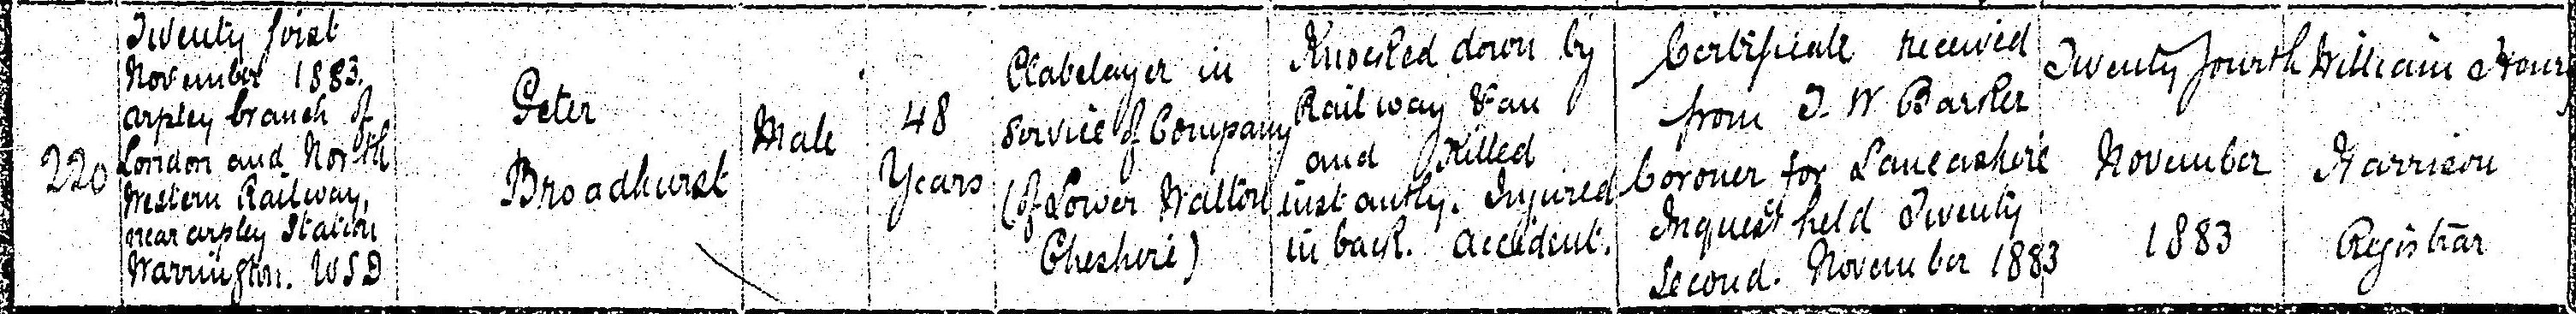 220
Twenty first
November 1883.
Arpley branch of
London and North
Western Railway,
near Arpley Station
Warrington. WSD
Peter
Broadhurst
Male
48
Years
Platelayer in
Service of Company
(of Lower Walton
Cheshire)
Knocked down by
Railway Van
and Killed
instantly. Injured
in back. Accident.
Certificate received
from
Coroner for Lancashire
Inquest held Twenty
Second. November 1883
Twenty fourth
November
1883
William Henry
Harrison
Registrar